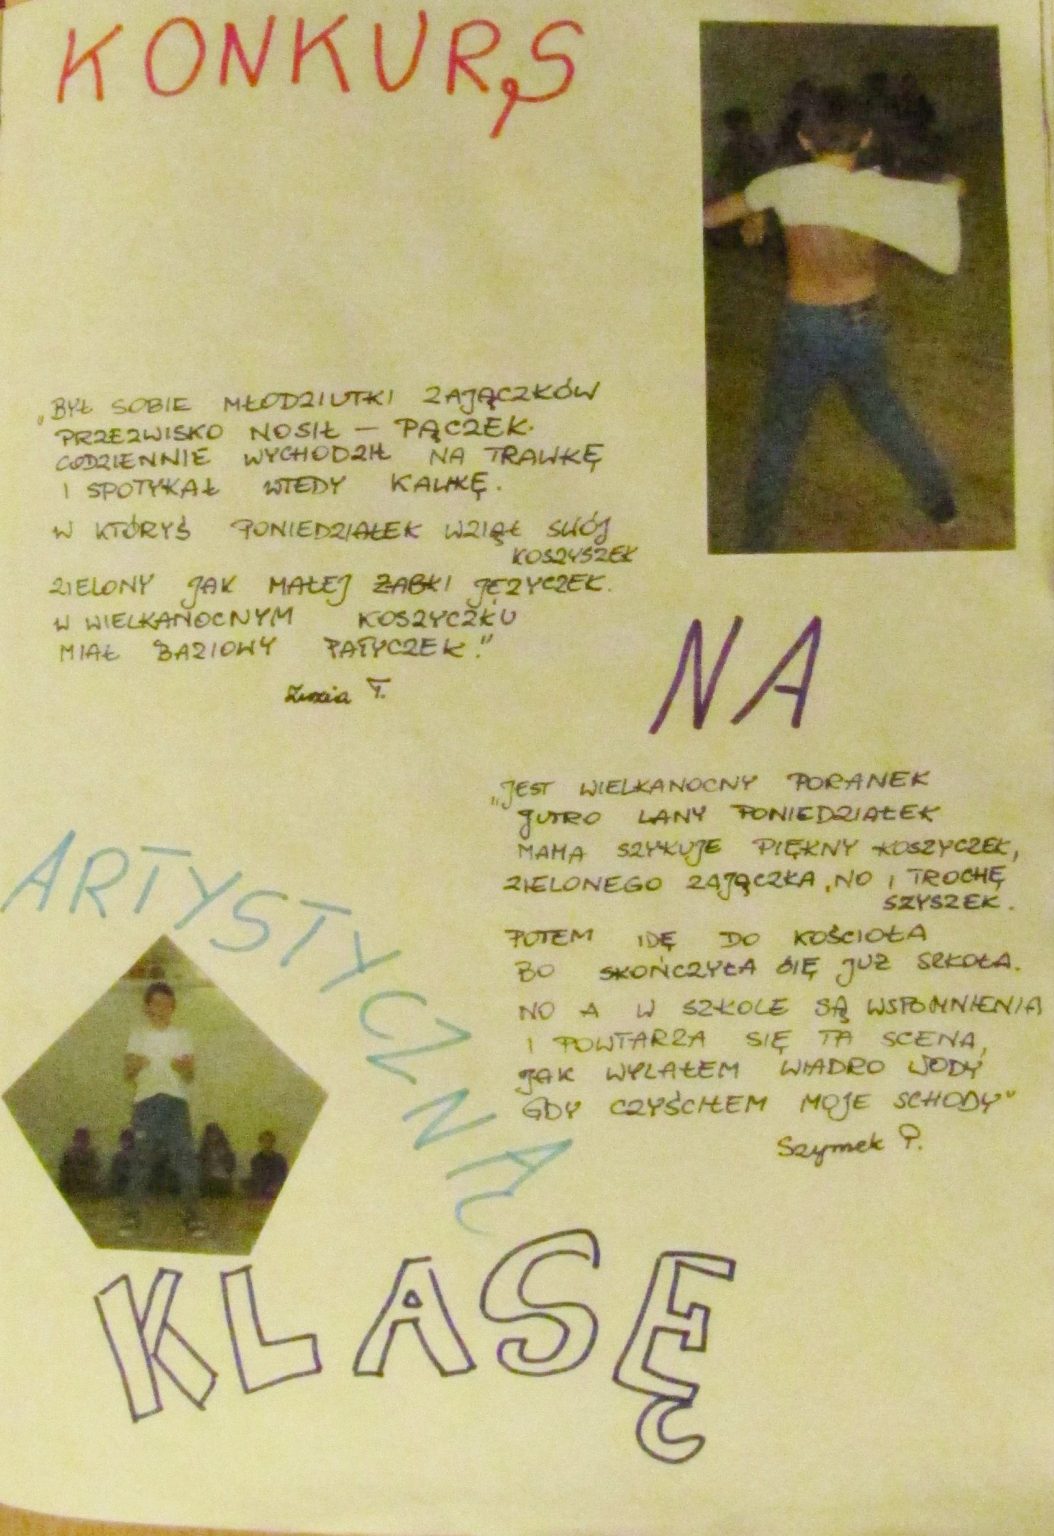 KONKURS
„BYŁ SOBIE MŁODZIUTKI ZAJĄCZKÓW
PRZEZWISKO NOSIŁ — PĄCZEK.
CODZIENNIE WYCHODZIŁ NA TRAWKĘ
I SPOTYKAŁ WTEDY KAWKĘ.
W KTÓRYŚ PONIEDZIAŁEK WZIĄŁ SWÓJ
KOSZYSZEK
ZIELONY JAK MAŁEJ ŻABKI JĘZYCZEK.
W WIELKANOCNYM KOSZYCZKU
MIAŁ BAZIOWY PATYCZEK."
Zuzia T.
NA
„JEST WIELKANOCNY PORANEK
JUTRO LANY PONIEDZIAŁEK
MAMA SZYKUJE PIĘKNY KOSZYCZEK,
ZIELONEGO ZAJĄCZKA, NO I TROCHĘ
SZYSZEK.
POTEM IDĘ DO KOŚCIOŁA
BO SKOŃCZYŁA SIĘ JUŻ SZKOŁA.
NO A W SZKOLE SĄ WSPOMNIENIA
I POWTARZA SIĘ TA SCENA,
JAK WYLAŁEM WIADRO WODY
GDY CZYŚCIŁEM MOJE SCHODY"
Szymek P.
ARTYSTYCZNĄ
KLASĘ